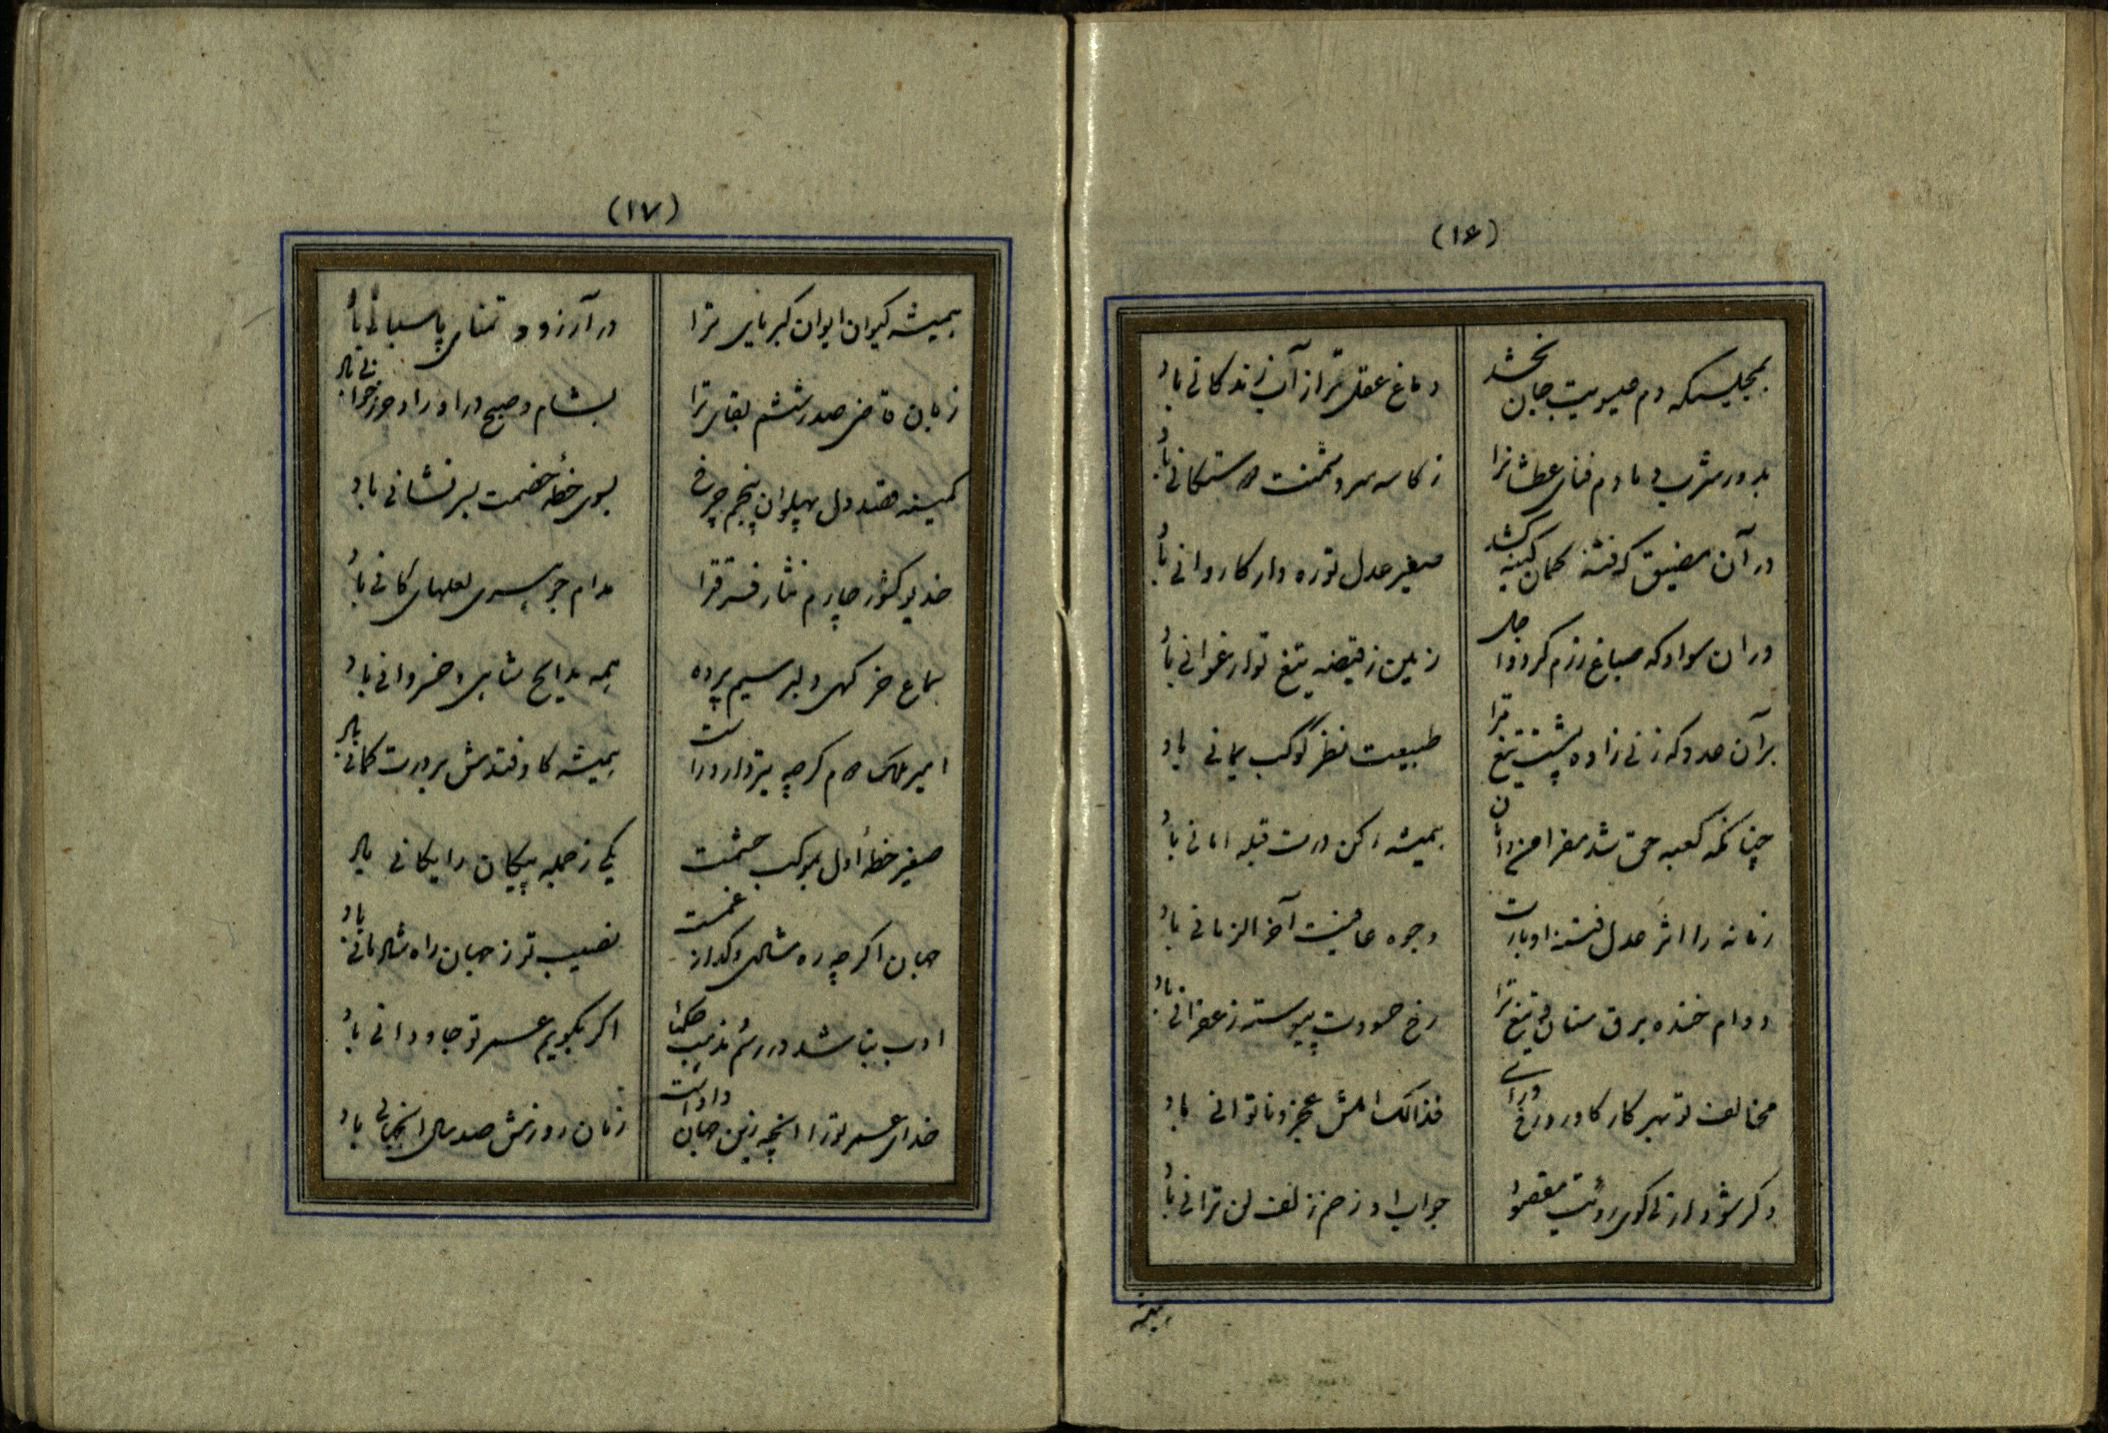 (۱۶)
بمجلسیکه دم عیسویت جان بخشد دماغ عقل تر از آب زندگانی باد
بدور مشرب دمادم فنای عطشانرا ز کاسه سر دشمنت دوستکانی باد
در آن مضیق که فتنه کمان کینه کشد صفیر عدل تو ره دار کاروانی باد
در ان سواد که صباغ رزم گردد اجل زمین ز قبضه تیغ تو ارغوانی باد
بر آن عدو که زنی زاده پشت تیغ ترا طبیعت نظر کوکب یمانی باد
چنانکه کعبه حق شد مقر امن و امان همیشه رکن درت قبله امانی باد
زمانه را اثر عدل فتنه اوبارت وجوه عافیت آخر الزمانی باد
دوام خنده برق سنان و تیغ ترا رخ حسودت پیوسته زعفرانی باد
مخالف تو بهر کار کاورد رخ و رای فذالک املش عجز و ناتوانی باد
دگر شود ارنی گوی رؤیت مقصود جواب او ز خم زلف لن ترانی باد
همیشه
(۱۷)
همیشه کیوان ایوان کبریای ترا در آرزو و تمنای پاسبانی باد
زبان قاضی صدر ششم بقای ترا بشام و صبح در اوراد حرز خوانی باد
کمینه هندو دل پهلوان پنجم چرخ بسوی خطه خصمت بسرفشانی باد
خدیو کشور چارم نثار فرقترا مدام جوهری لعلهای کانی باد
سماع خرگهی دلبر سیم پرده همه مدایح شاهی و خسروانی باد
امیر ملک دوم گرچه تیر دارد راست همیشه کار قدش بر درت کمانی باد
صفیر خطه اول بموکب حشمت یکی ز جمله پیکان رایگانی باد
جهان اگرچه ره شادی و گداز غمست نصیب تو ز جهان راه شادمانی باد
ادب نباشد در رسم مذهب حکما اگر بگویم عمر تو جاودانی باد
خدای عمر تو را انچه زین جهان دادست زمان روزش صد سال اینجهانی باد